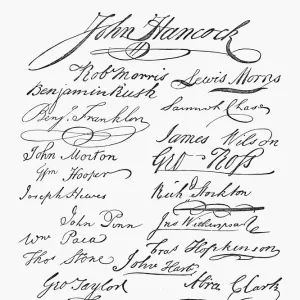 John Hancock
Robt Morris Lewis Morris
Benjamin Rush
Benj. Franklin Samuel Chase
James Wilson
John Morton Geo Ross
Wm Hooper
Joseph Hewes Richd Stockton
John Penn Jno Witherspoon
Wm Paca Fras Hopkinson
Thos Stone John Hart
Geo Taylor Abra Clark